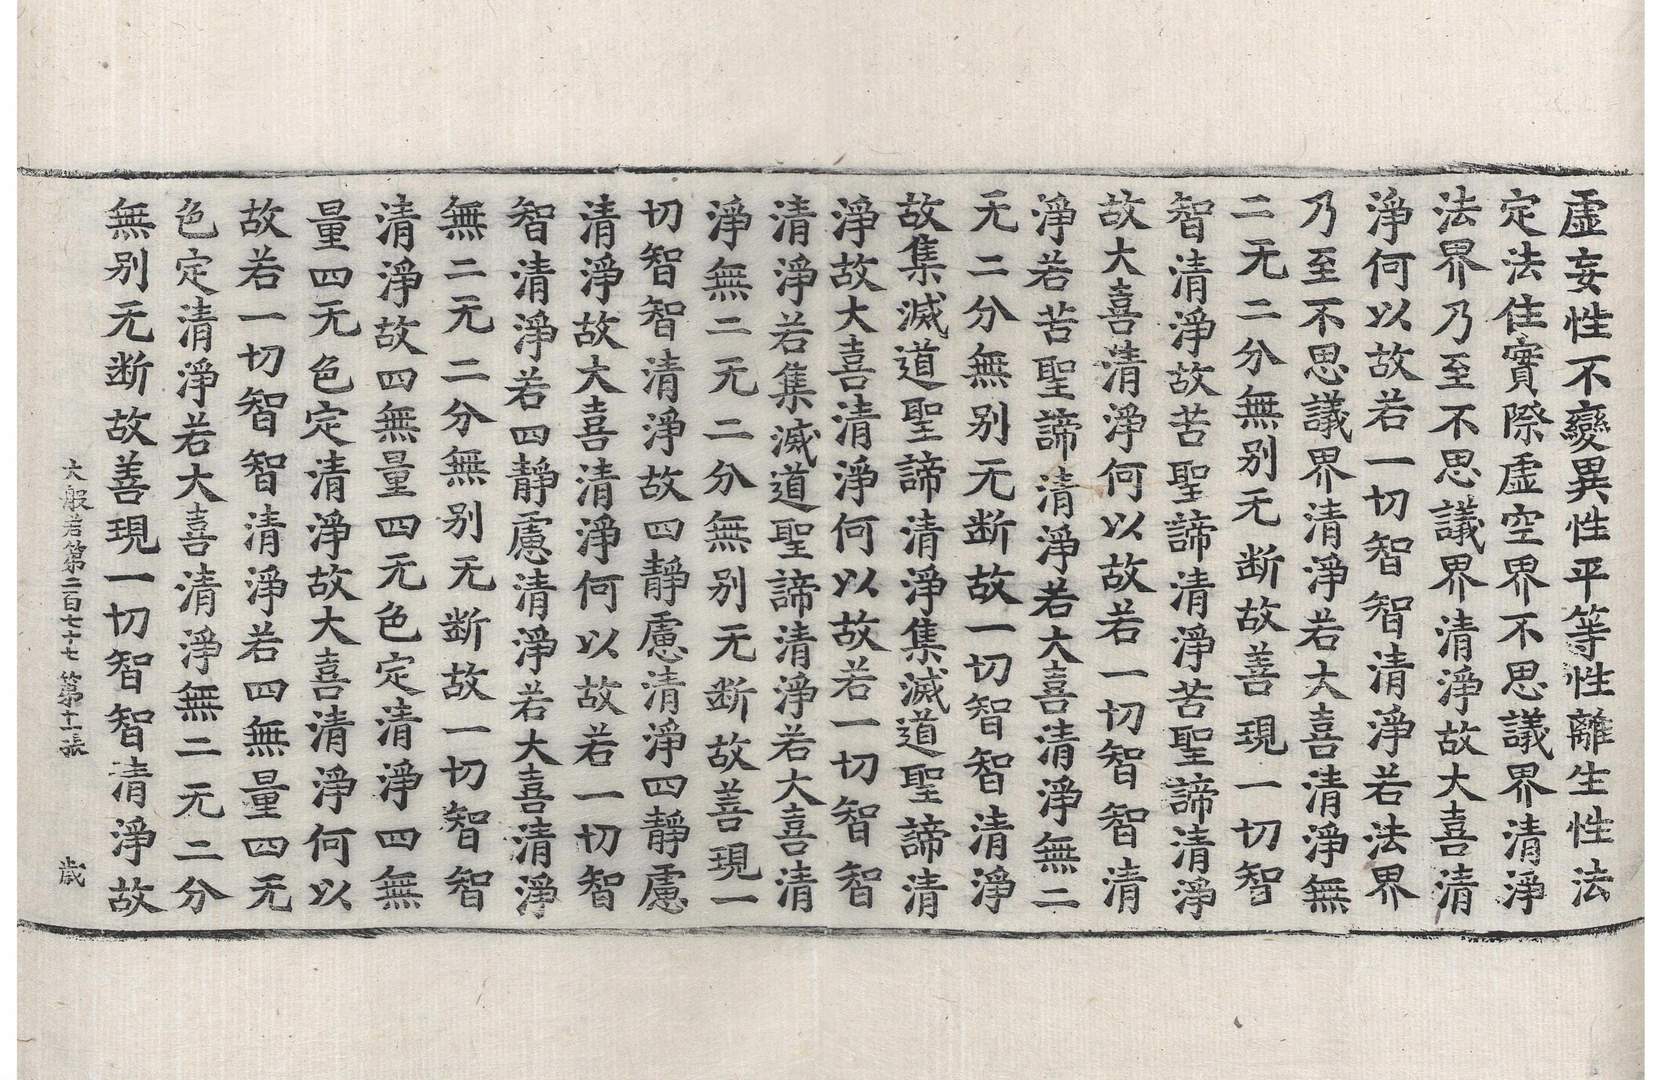 虛妄性不變異性平等性離生性法
定法住實際虛空界不思議界清淨
法界乃至不思議界清淨故大喜清
淨何以故若一切智智清淨若法界
乃至不思議界清淨若大喜清淨無
二无二分無別无断故善現一切智
智清淨故苦聖諦清淨苦聖諦清淨
故大喜清淨何以故若一切智智清
淨若苦聖諦清淨若大喜清淨無二
无二分無別无断故一切智智清淨
故集滅道聖諦清淨集滅道聖諦清
淨故大喜清淨何以故若一切智智
清淨若集滅道聖諦清淨若大喜清
淨無二无二分無別无断故善現一
切智智清淨故四靜慮清淨四靜慮
清淨故大喜清淨何以故若一切智
智清淨若四靜慮清淨若大喜清淨
無二无二分無別无断故一切智智
清淨故四無量四无色定清淨四無
量四无色定清淨故大喜清淨何以
故若一切智智清淨若四無量四无
色定清淨若大喜清淨無二无二分
無別无断故善現一切智智清淨故
大般若第二百七十七 第十一張 歲